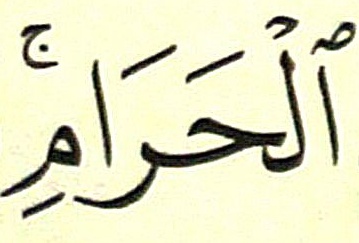 ٱلْحَرَامِ ۚ